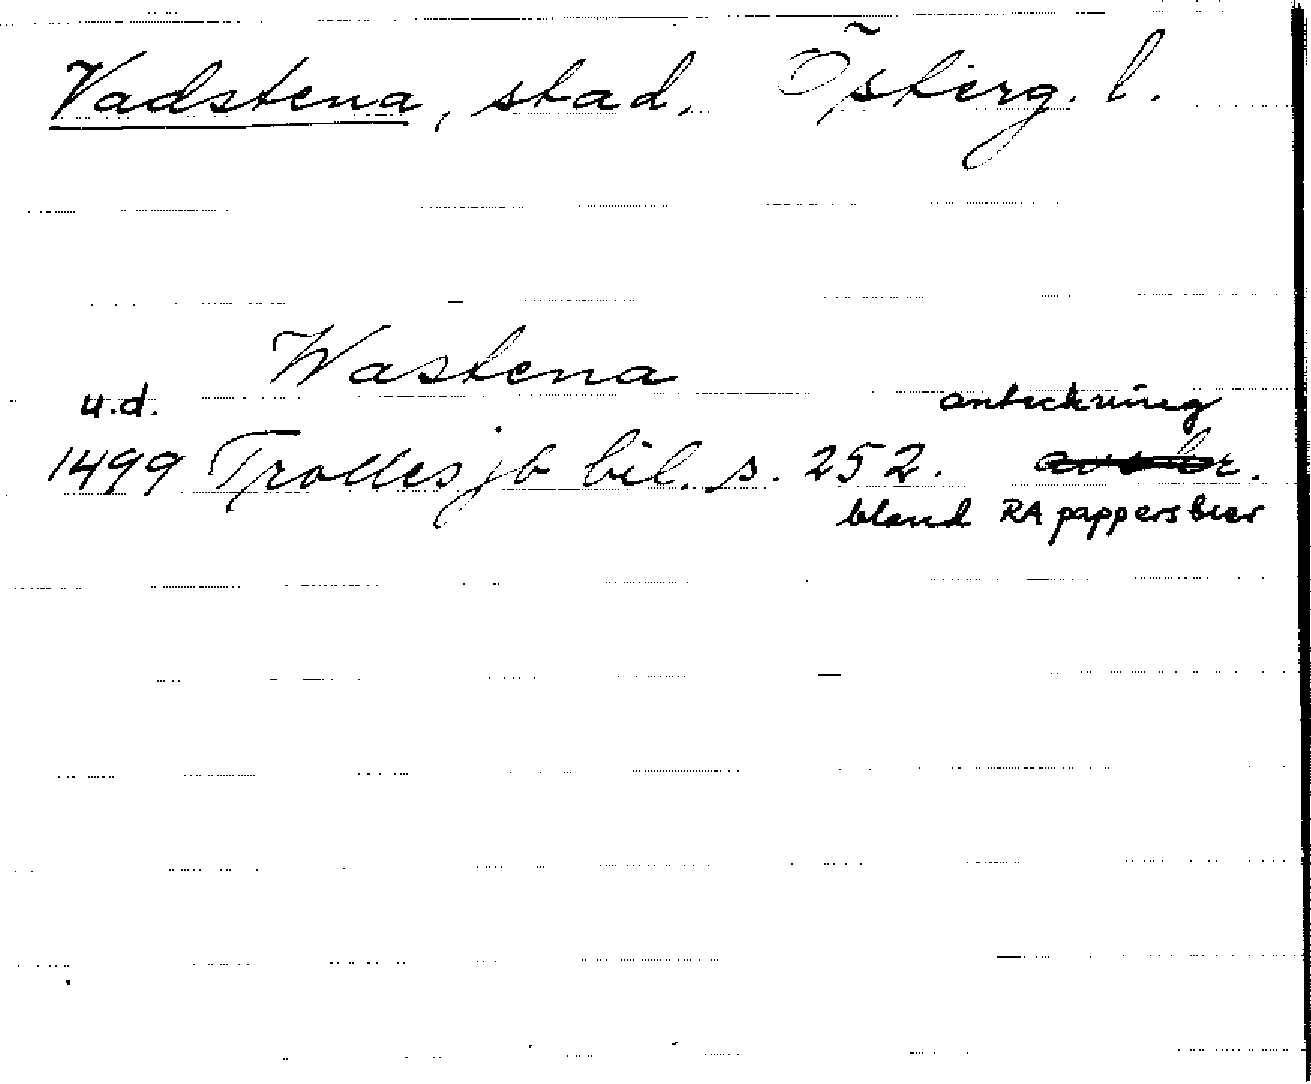 Vadstena, stad. Österg. l.
Wastena
u.d. anteckning
1499 Trolles jb bil. s. 252.
bland RA pappersbrev